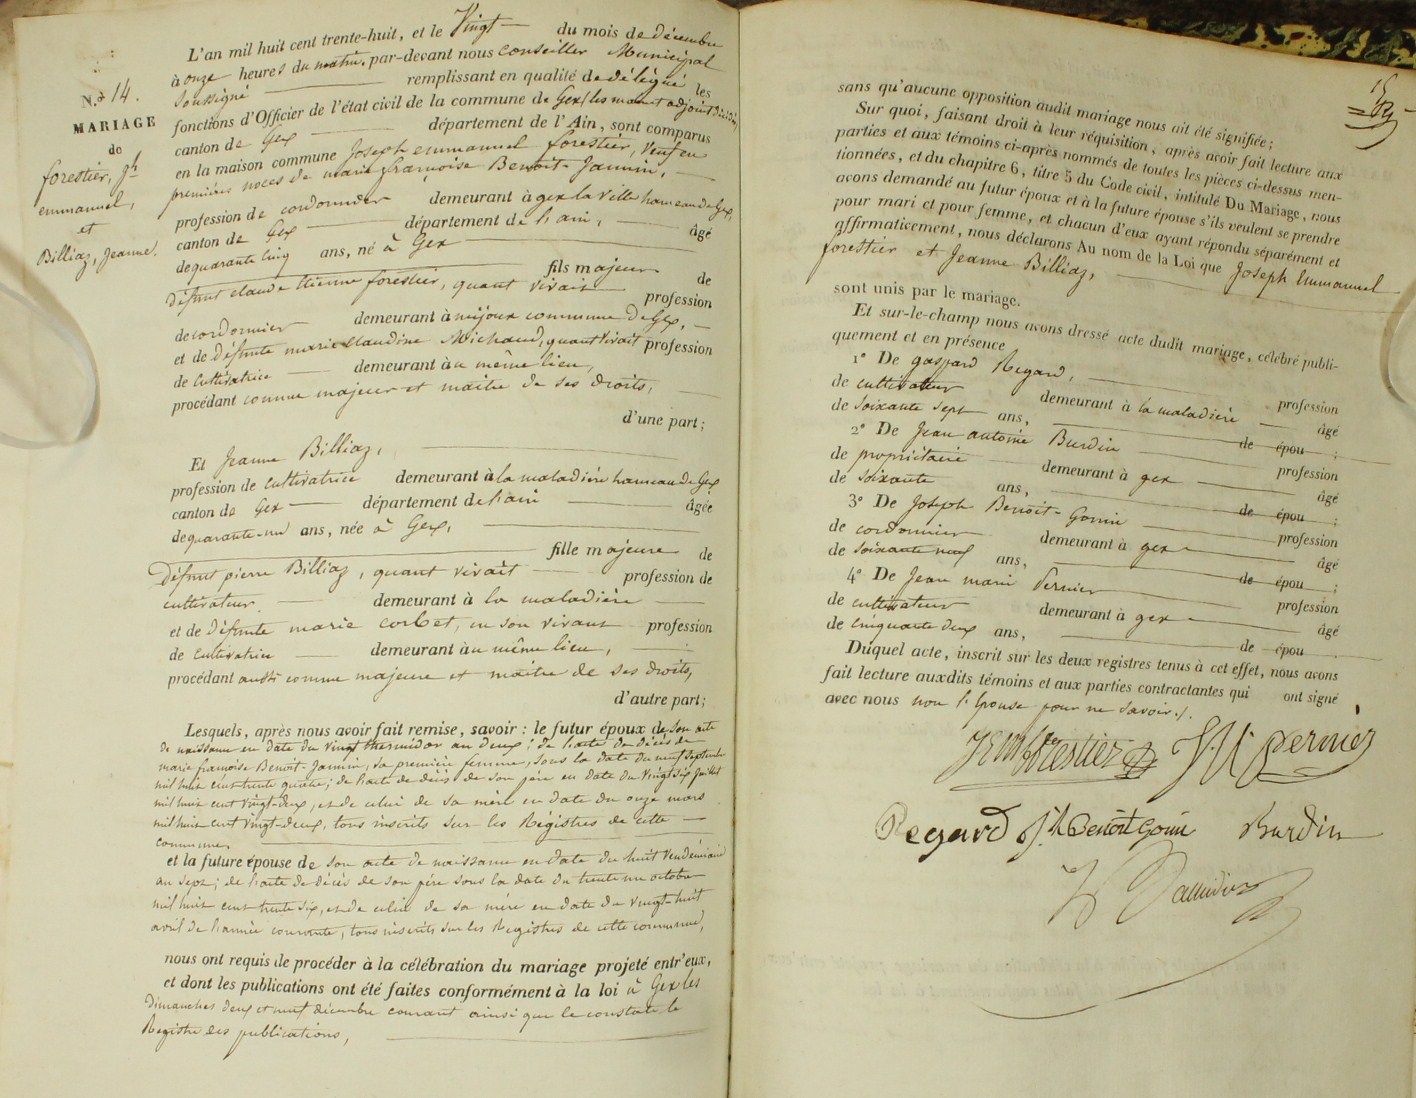 N.º 14.
MARIAGE
de
forestier, jh
emmanuel,
et
Billiaz, Jeanne.
L'an mil huit cent trente-huit, et le Vingt du mois de décembre
à onze heures du matin, par-devant nous Conseiller Municipal
soussigné remplissant en qualité de délégué les
fonctions d'Officier de l'état civil de la commune de Gex (les maire et adjoint
canton de Gex département de l'Ain, sont comparus
en la maison commune Joseph emmanuel forestier, veuf en
premières noces de marie françoise Benoit-Jannin,
profession de cordonnier demeurant à gex la Ville hameau de Gex,
canton de Gex département de l'ain, âgé
de quarante cinq ans, né à Gex
fils majeur de
défunt claude Etienne forestier, quant vivait profession
de cordonnier demeurant à mijoux commune de Gex,
et de défunte marie claudine Michaud, quant vivait profession
de Cultivatrice demeurant au même lieu,
procédant comme majeur et maitre de ses droits,
d'une part;
Et Jeanne Billiaz,
profession de cultivatrice demeurant à la maladière hameau de Gex
canton de Gex département de l'ain âgée
de quarante-un ans, née à Gex,
fille majeure de
défunt pierre Billiaz, quant vivait profession de
cultivateur demeurant à la maladière
et de défunte marie corbet, en son vivant profession
de cultivatrice demeurant au même lieu,
procédant aussi comme majeure et maitre de ses droits,
d'autre part;
Lesquels, après nous avoir fait remise, savoir : le futur époux de son acte
de naissance en date du vingt thermidor an deux; de l'acte de décès de
marie françoise Benoit-Jannin, sa première femme, sous la date du neuf septembre
mil huit cent trente quatre; de l'acte de décès de son père en date du vingt six juillet
mil huit cent vingt-deux, et de celui de sa mère en date du onze mars
mil huit cent vingt-deux, tous inscrits sur les Régistres de cette
commune.
et la future épouse de son acte de naissance en date du huit Vendémiaire
an sept; de l'acte de décès de son père sous la date du trente un octobre
mil huit cent trente six, et de celui de sa mère en date du vingt-huit
avril de l'année courante, tous inscrits sur les Registres de cette commune,
nous ont requis de procéder à la célébration du mariage projeté entr'eux,
et dont les publications ont été faites conformément à la loi à Gex les
dimanches deux et neuf décembre courant ainsi que le constate le
Registre des publications,
sans qu'aucune opposition audit mariage nous ait été signifiée;
Sur quoi, faisant droit à leur réquisition, après avoir fait lecture aux
parties et aux témoins ci-après nommés de toutes les pièces ci-dessus men-
tionnées, et du chapitre 6, titre 5 du Code civil, intitulé Du Mariage, nous
avons demandé au futur époux et à la future épouse s'ils veulent se prendre
pour mari et pour femme, et chacun d'eux ayant répondu séparément et
affirmativement, nous déclarons Au nom de la Loi que Joseph Emmanuel
forestier et Jeanne Billiaz,
sont unis par le mariage.
Et sur-le-champ nous avons dressé acte dudit mariage, célébré publi-
quement et en présence
1º De gaspard Regard, profession
de cultivateur demeurant à la maladière âgé
de soixante sept ans, de épou ;
2º De Jean antoine Burdin profession
de propriétaire demeurant à gex âgé
de soixante ans, de épou ;
3º De Joseph Benoit-Gonin profession
de cordonnier demeurant à gex âgé
de soixante neuf ans, de épou ;
4º De Jean marie Pernier profession
de cultivateur demeurant à gex âgé
de cinquante deux ans, de épou .
Duquel acte, inscrit sur les deux registres tenus à cet effet, nous avons
fait lecture auxdits témoins et aux parties contractantes qui ont signé
avec nous non l'épouse pour ne savoir./.
forestier J. M Pernier
Regard Jh Benoit Gonin Burdin